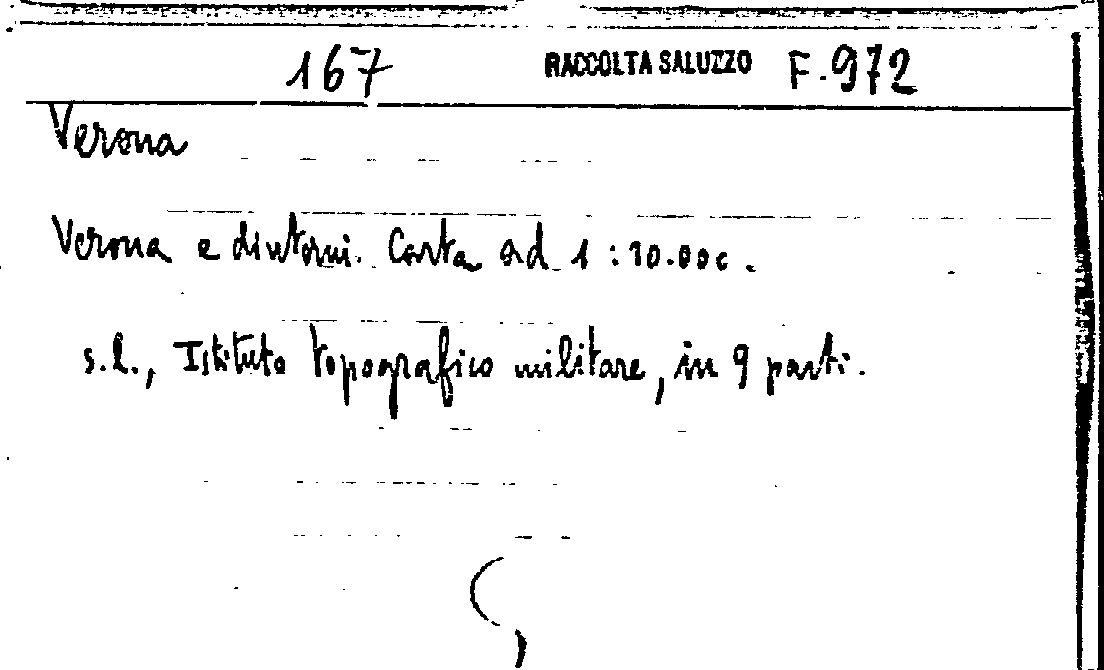 167 RACCOLTA SALUZZO F.972
Verona
Verona e dintorni. Carta ad 1:10.000.
s.l., Istituto topografico militare, in 9 parti.